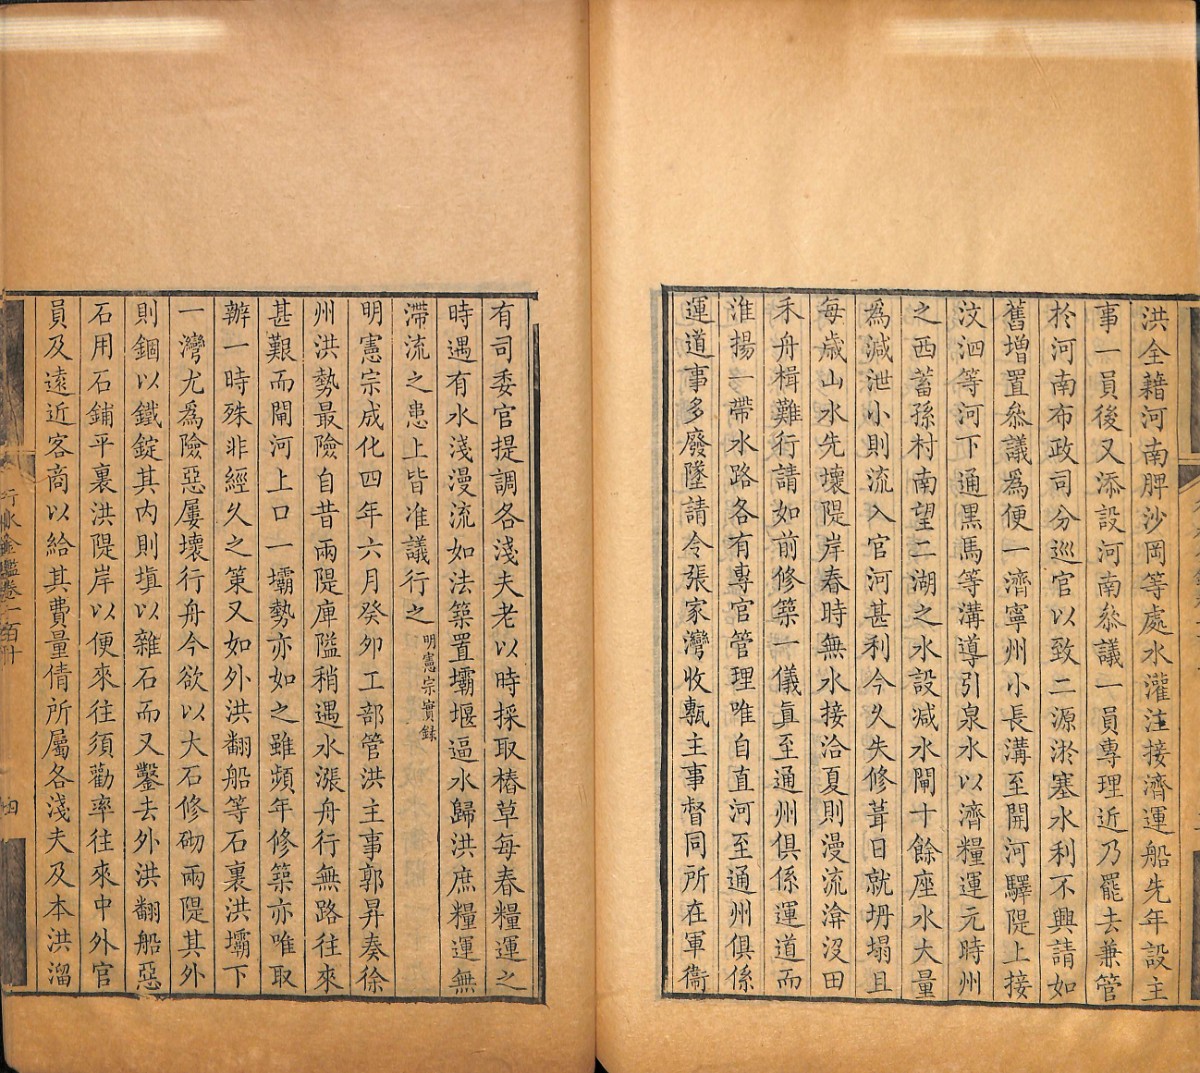 洪全藉河南脾沙岡等處水灌注接濟運船先年設主
事一員後又添設河南叅議一員專理近乃罷去兼管
於河南布政司分巡官以致二源淤塞水利不興請如
舊增置叅議爲便一濟寧州小長溝至開河驛隄上接
汶泗等河下通黑馬等溝導引泉水以濟糧運元時州
之西蓄孫村南望二湖之水設减水閘十餘座水大量
爲減泄小則流入官河甚利今久失修葺日就坍塌且
每歳山水先壞隄岸春時無水接洽夏則漫流渰沒田
禾舟楫難行請如前修築一儀眞至通州俱係運道而
淮揚一帶水路各有專官管理唯自直河至通州俱係
運道事多廢墜請令張家灣收甎主事督同所在軍衞
有司委官提調各淺夫老以時採取樁草每春糧運之
時遇有水淺漫流如法築置壩堰逼水歸洪庶糧運無
滯流之患上皆准議行之明憲宗實錄
明憲宗成化四年六月癸卯工部管洪主事郭昇奏徐
州洪勢最險自昔兩隄庳隘稍遇水漲舟行無路往來
甚艱而閘河上口一壩勢亦如之雖頻年修築亦唯取
辦一時殊非經久之策又如外洪翻船等石裏洪壩下
一灣尤爲險惡屢壞行舟今欲以大石修砌兩隄其外
則錮以鐵錠其內則塡以雜石而又鑿去外洪翻船惡
石用石鋪平裏洪隄岸以便來往須勸率往來中外官
員及遠近客商以給其費量倩所屬各淺夫及本洪溜
行水金鑑卷一百十
四